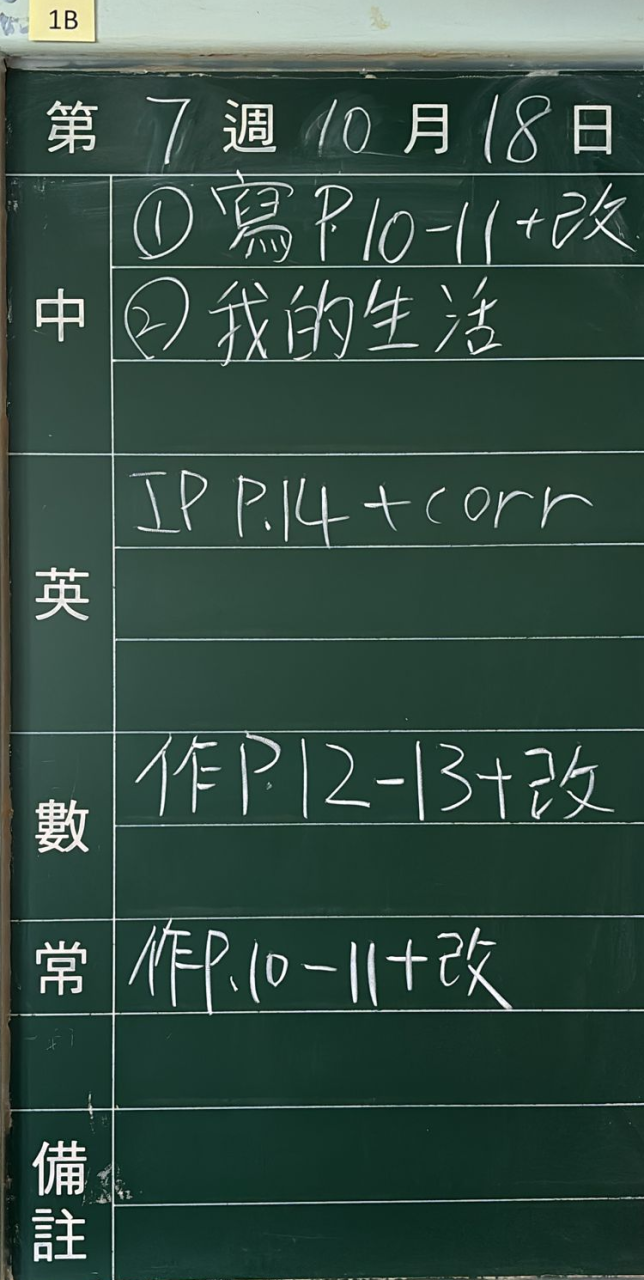 1B
第 7 週 10 月 18 日
中
① 寫 P.10-11+改
② 我的生活
英
IP P.14 + corr
數
作P.12-13+改
常
作P.10-11+改
備註